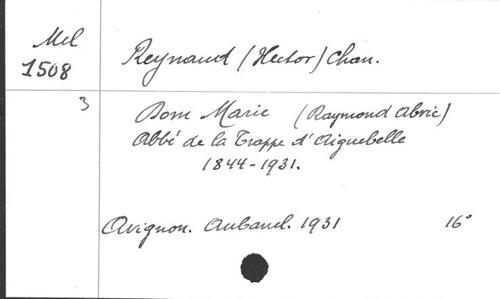 Mel
1508
Reynaud (Hector) Chan.
3
Dom Marie (Raymond Abric)
Abbé de la Trappe d'Aiguebelle
1844-1931.
Avignon. Aubanel. 1931 16°